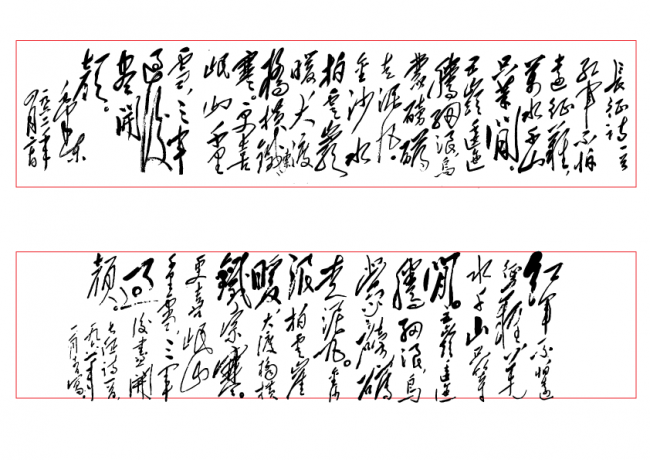 長征詩一首
紅軍不怕
遠征難,
萬水千山
只等閒。
五嶺逶迤
騰細浪,烏
蒙磅礴
走泥丸。
金沙水
拍雲巖
暖,大渡
橋橫鐵索
寒。更喜
岷山千里
雪,三軍
過後
盡開
顏。
毛澤東
一九六二年
四月二十日
紅軍不怕遠
征難,萬
水千山只等
閒。五嶺逶迤
騰細浪,烏
蒙磅礴
走泥丸。金沙
浪拍雲崖
暖,大渡橋橫
鐵索寒。
更喜岷山
千里雪,三軍
過後盡開
顏。
長征詩一首